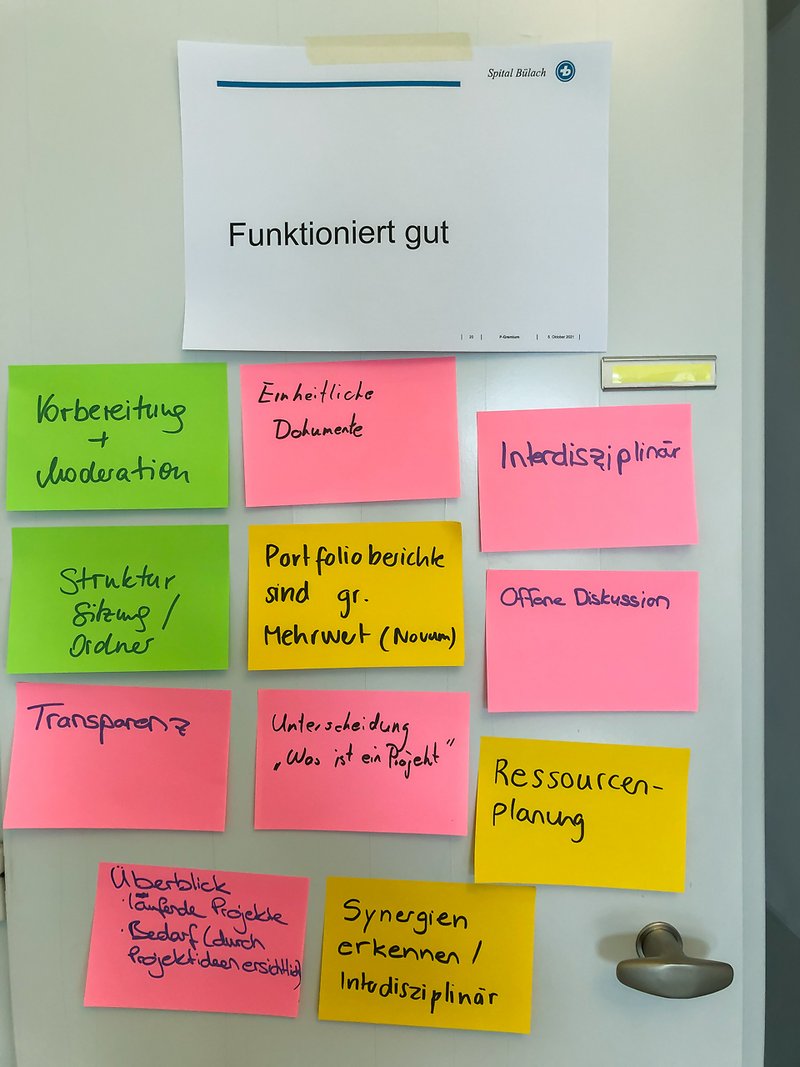 Spital Bülach
Funktioniert gut
| 20 | P-Gremium | 5. Oktober 2021 |
Vorbereitung
+
Moderation
Einheitliche
Dokumente
Interdisziplinär
Struktur
Sitzung /
Ordner
Portfolioberichte
sind gr.
Mehrwert (Novum)
Offene Diskussion
Transparenz
Unterscheidung
„Was ist ein Projekt"
Ressourcen-
planung
Überblick
· läuferde Projekte
· Bedarf (durch
Projektideen ersichtlich)
Synergien
erkennen /
Intedisziplinär